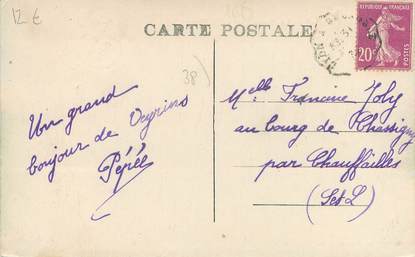 12 €
CARTE POSTALE
20c
POSTES
38
Un grand
bonjour de Oyrins
Pépée
Melle Francine Joly
au bourg de Chassigny
par Chauffailles
(S et L)